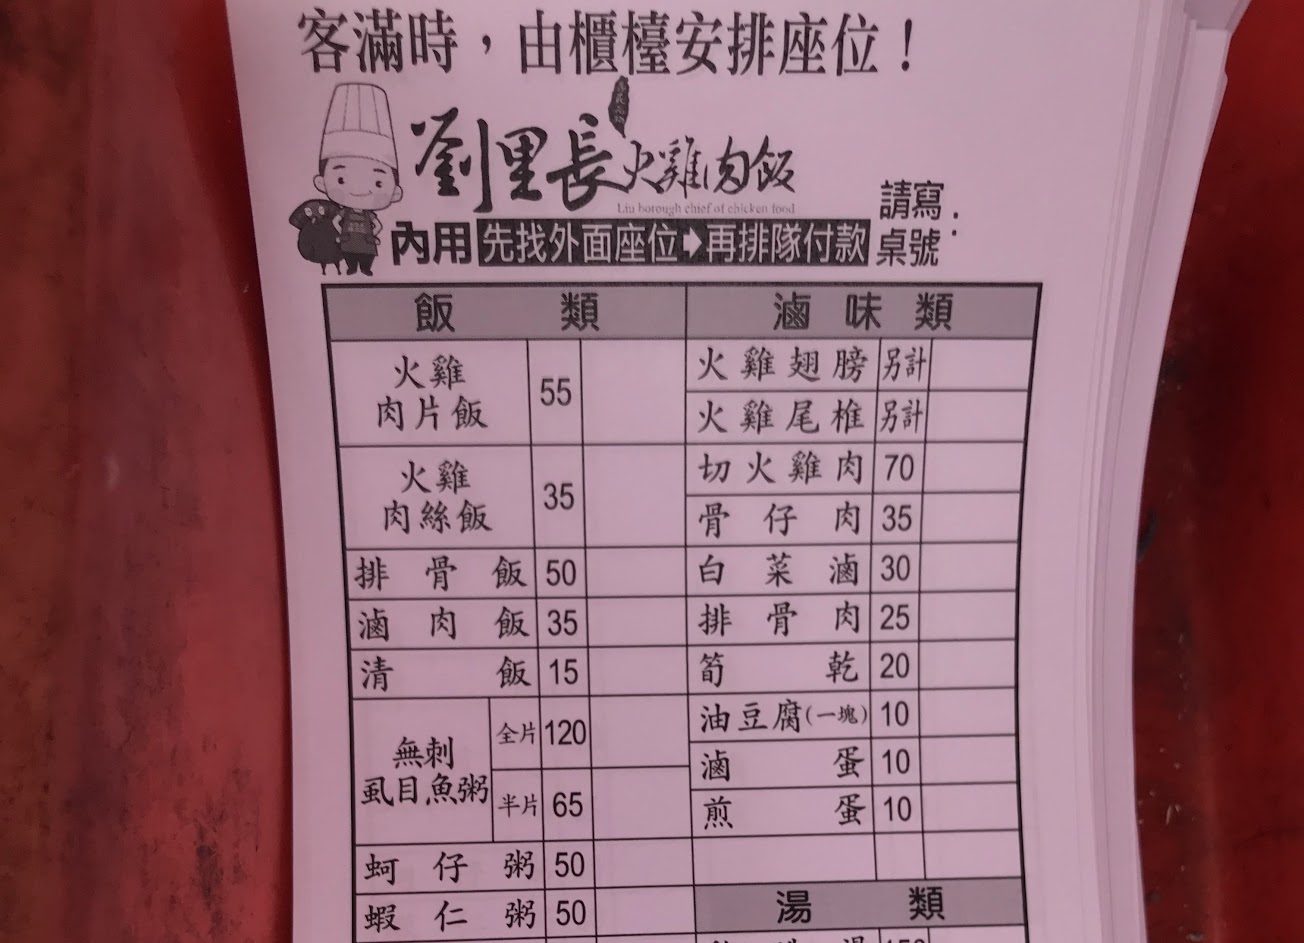 客滿時，由櫃檯安排座位！
劉里長火雞肉飯
Liu borough chief of chicken food
請寫桌號：
內用 先找外面座位➡再排隊付款
飯類
火雞肉片飯 55
火雞肉絲飯 35
排骨飯 50
滷肉飯 35
清飯 15
無刺虱目魚粥 全片 120
半片 65
蚵仔粥 50
蝦仁粥 50
滷味類
火雞翅膀 另計
火雞尾椎 另計
切火雞肉 70
骨仔肉 35
白菜滷 30
排骨肉 25
筍乾 20
油豆腐(一塊) 10
滷蛋 10
煎蛋 10
湯類